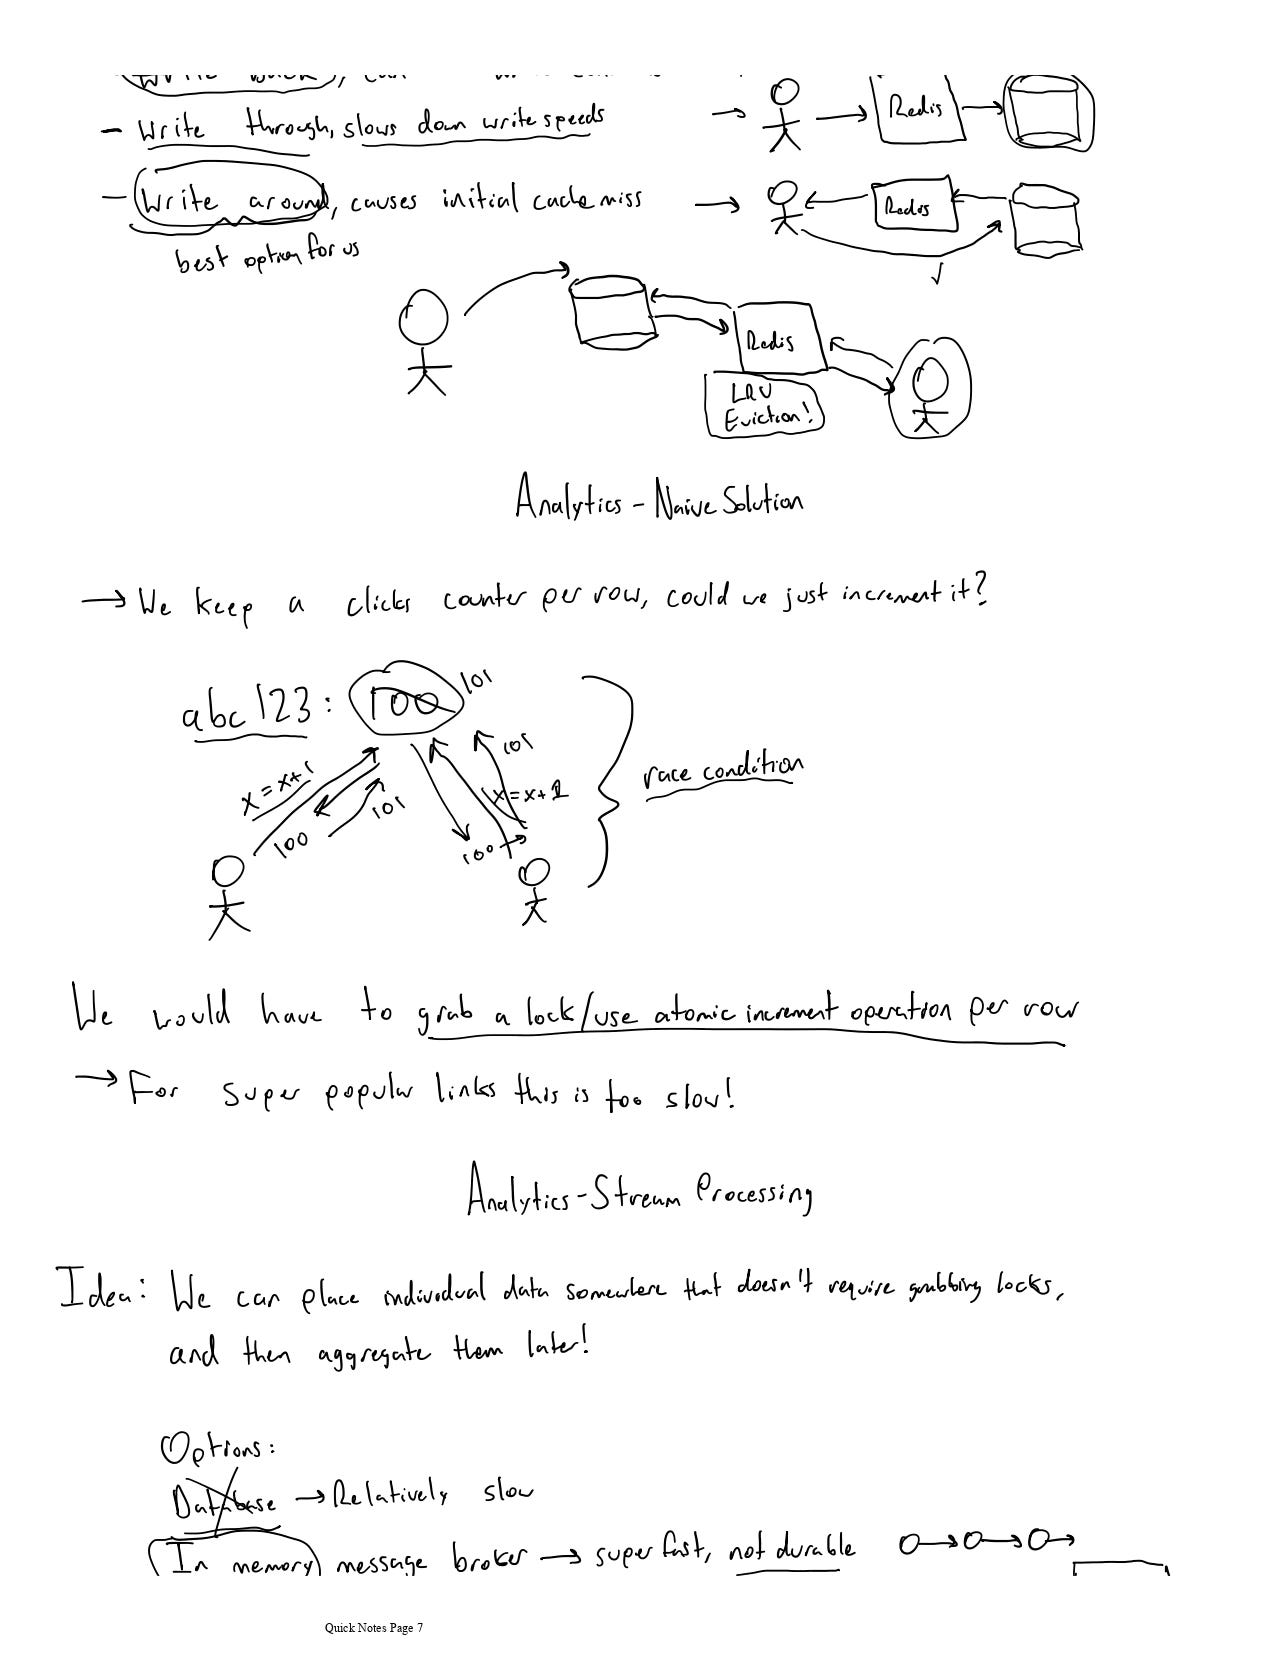 - Write through, slows down write speeds
Redis
- Write around, causes initial cache miss
Redis
best option for us
Redis
LRU
Eviction!
Analytics - Naive Solution
→ We keep a clicks counter per row, could we just increment it?
abc123: 100 101
101
x = x+1
x = x+1
101
100
100
race condition
We would have to grab a lock/use atomic increment operation per row
→ For super popular links this is too slow!
Analytics - Stream Processing
Idea: We can place individual data somewhere that doesn't require grabbing locks,
and then aggregate them later!
Options:
Database → Relatively slow
In memory message broker → super fast, not durable
Quick Notes Page 7